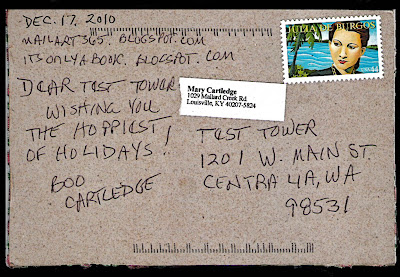 DEC. 17, 2010
MAILART365.BLOGSPOT.COM
ITSONLYABOOK.BLOGSPOT.COM
DEAR TEST TOWER
WISHING YOU
THE HOPPIEST
OF HOLIDAYS!
BOO
CARTLEDGE
JULIA DE BURGOS
44
Mary Cartledge
1029 Mallard Creek Rd
Louisville, KY 40207-5824
TEST TOWER
1201 W. MAIN ST.
CENTRALIA, WA
98531